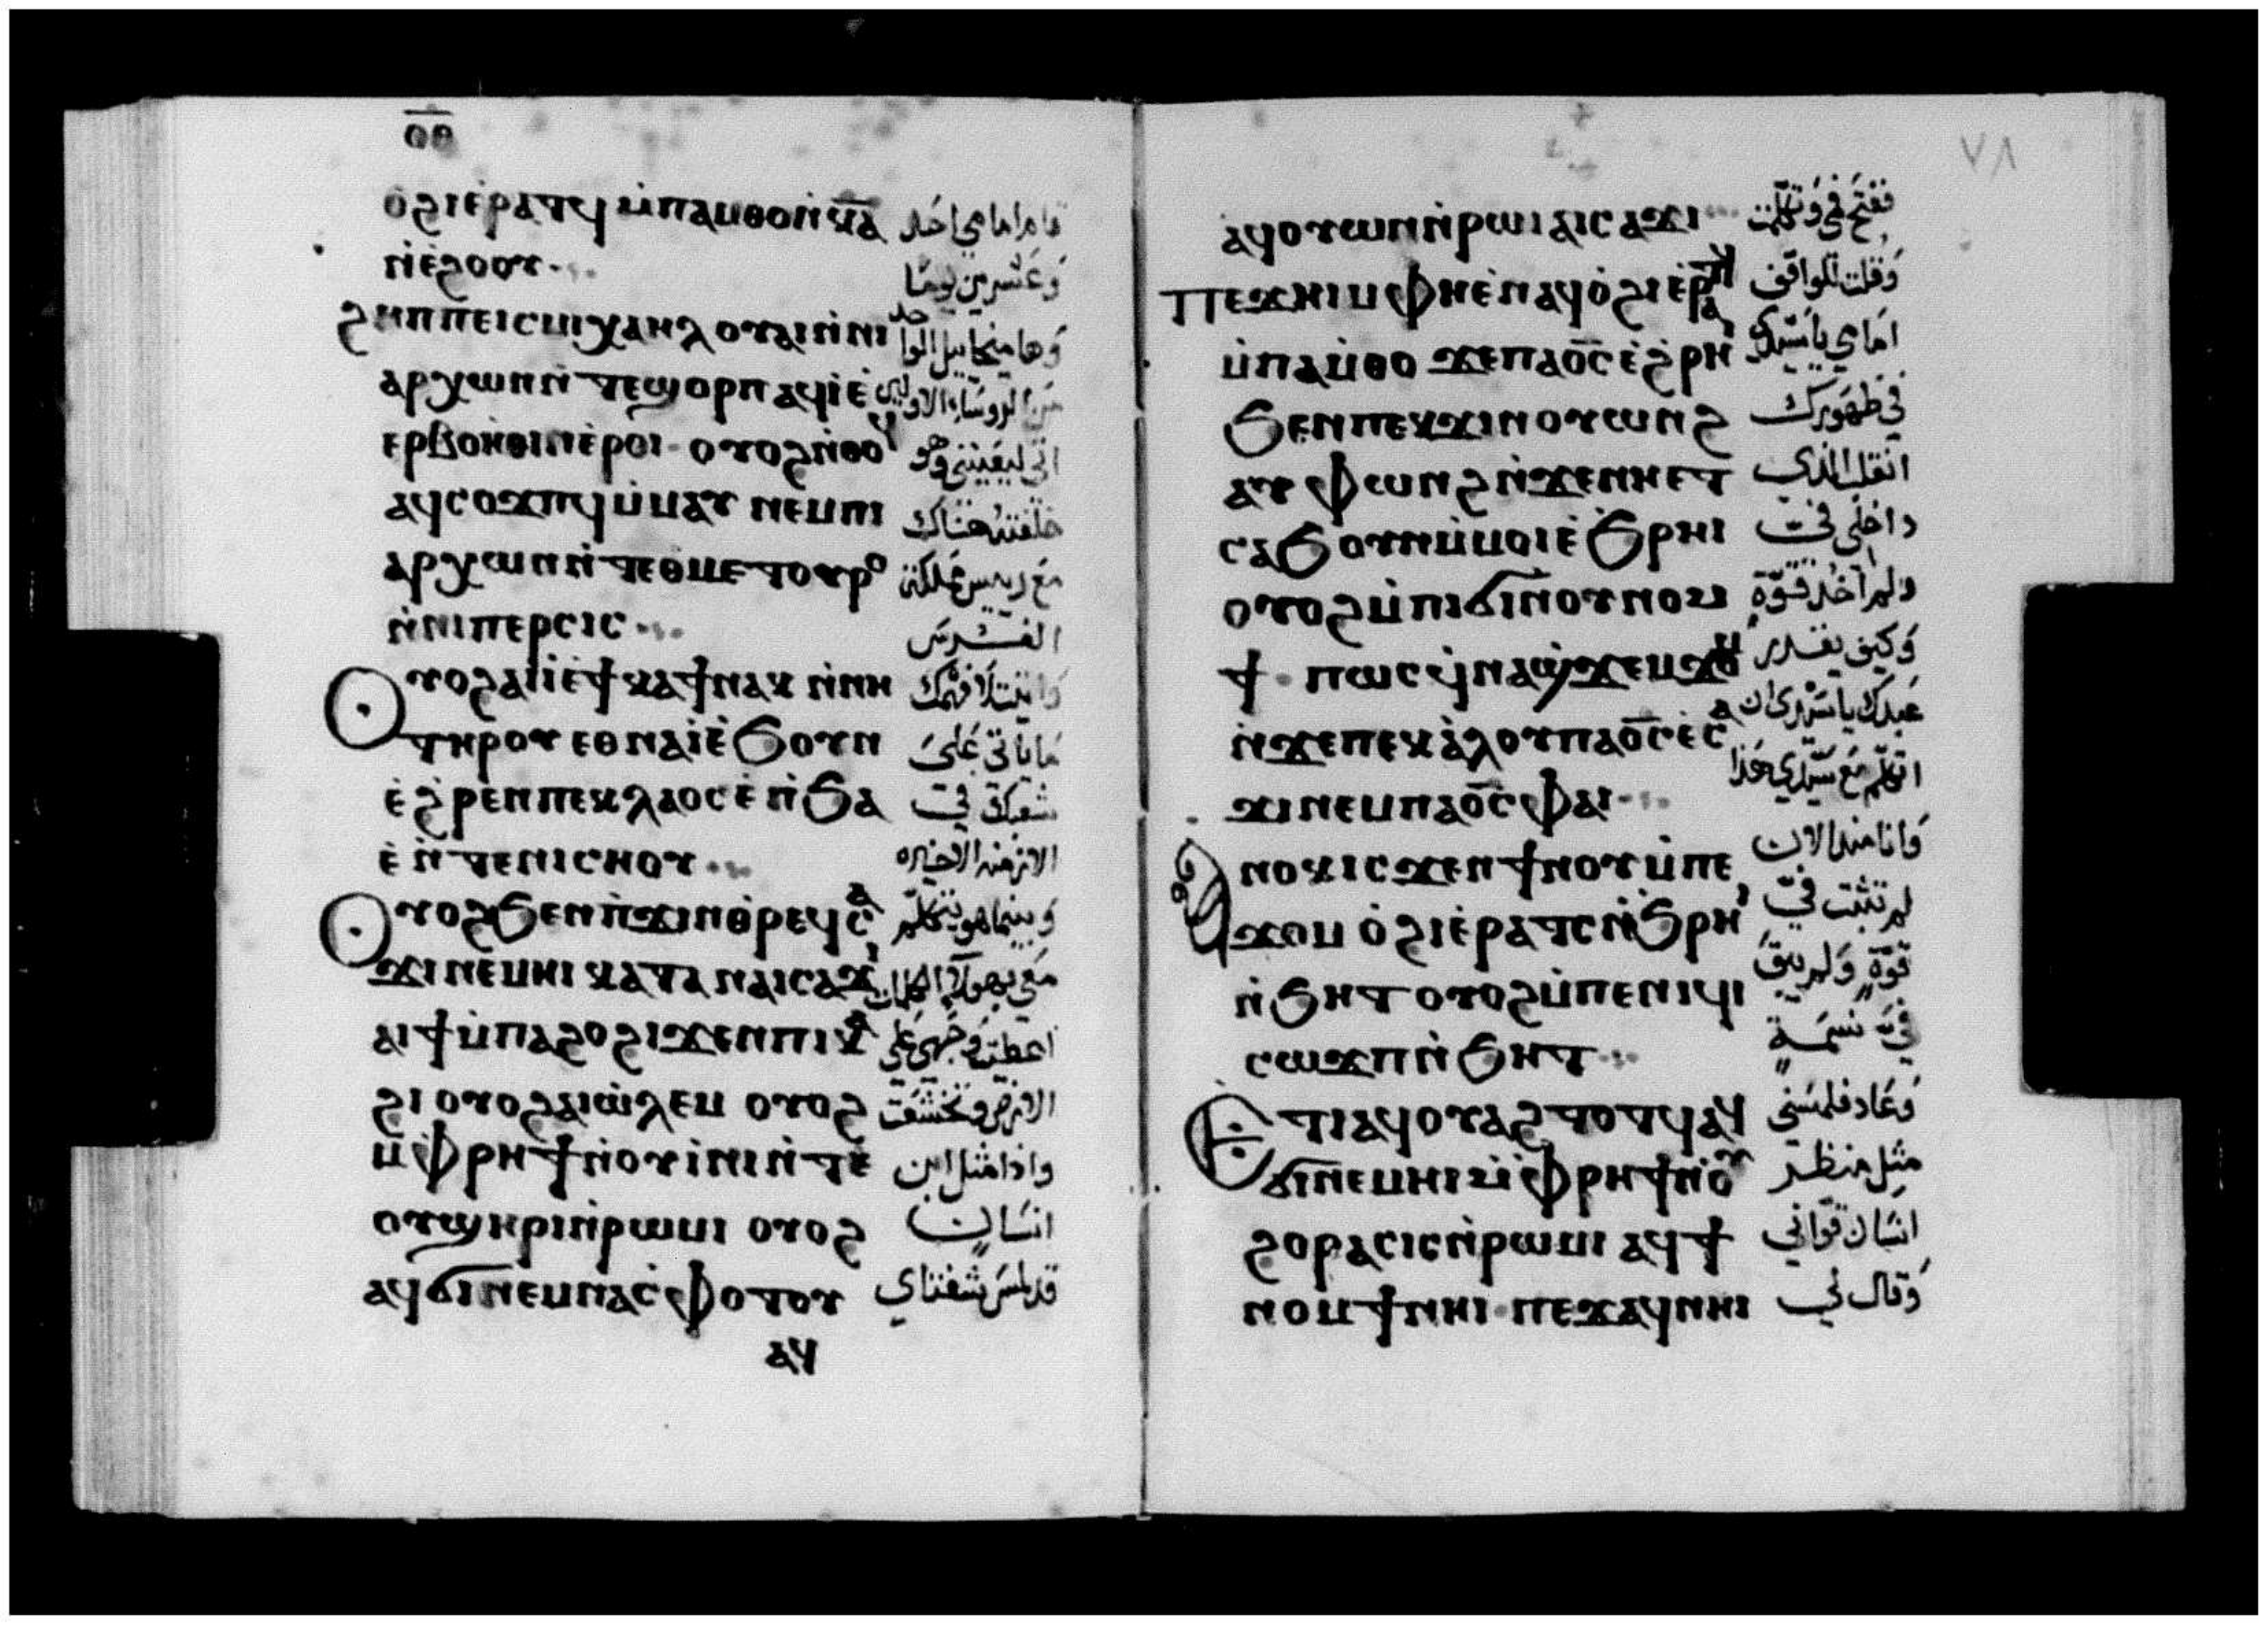 ⲟⲑ
ⲟ̇ϩⲓⲉ̇ⲣⲁⲧϥ ⲙ̇ⲡⲁⲙⲑⲟⲛ̇ⲕ̅ⲁ̅ قام امامي احد
ⲛ̇ⲉ̇ϩⲟⲟⲩ وعشرين يوما
ϩⲏⲡⲡⲉⲓⲥⲙⲓⲭⲁⲏⲗ ⲟⲩⲁⲓⲛ̇ⲛⲓ وها ميخاييل الواحد
ⲁⲣⲭⲱⲛⲛ̇ⲧⲉϣⲟⲣⲡ ⲁϥⲓ̇ⲉ̇ من الروساء الاولين
ⲉⲣⲃⲟⲏ̇ⲑⲓⲛⲉ̇ⲣⲟⲓ ⲟⲩⲟϩⲛ̇ⲑⲟϥ اتى ليعينني وهو
ⲁⲓⲥⲟϫⲡϥ ⲙ̇ⲙⲁⲩ ⲛⲉⲙⲡⲓ خلفته هناك
ⲁⲣⲭⲱⲛⲛ̇ⲧⲉⲑⲙⲉⲧⲟⲩⲣⲟ مع رييس مملكة
ⲛ̇ⲛⲓⲡⲉⲣⲥⲓⲥ الفرس
ⲟⲩⲟϩⲁⲓⲓ̇ⲉ̇ϯⲕⲁϯⲛⲁⲕ ⲛ̇ⲛⲏ واتيت لافهمك
ⲧⲏⲣⲟⲩ ⲉⲑⲛⲁⲓ̇ⲉ̇ϧⲟⲩⲛ ما ياتى على
ⲉ̇ϩⲣⲉⲛⲡⲉⲕⲗⲁⲟⲥⲉ̇ⲛ̇ϧⲁ شعبك في
ⲉ̇ ⲛ̇ⲧⲉⲛⲓⲥⲏⲟⲩ الازمنه الاخيره
ⲟⲩⲟϩϧⲉⲛⲡ̇ϫⲓⲛⲑ̇ⲣⲉϥⲥⲁ وبينما هو يتكلم
ϫⲓⲛⲉⲙⲏⲓ ⲕⲁⲧⲁ ⲛⲁⲓⲥⲁϫⲓ معي بهولاء الكلمات
ⲁⲓϯⲙ̇ⲡⲁϩⲟϩⲓϫⲉⲛⲡⲓⲕⲁ اعطيت وجهى على
ϩⲓ ⲟⲩⲟϩⲁⲓⲱ̇ⲗⲉⲙ ⲟⲩⲟϩ الارض وتخشعت
ⲙ̇ⲫⲣⲏϯⲛ̇ⲟⲩⲓ̇ⲛⲓⲛ̇ⲧⲉ واذا مثل ابن
ⲟⲩϣⲏⲣⲓⲛ̇ⲣⲱⲙⲓ ⲟⲩⲟϩ انسان
ⲁϥϭⲓⲛⲉⲙⲛⲁⲥ̇ⲫⲟⲧⲟⲩ قد لمس شفتاي
ⲁϥ
٧٨
ⲁϥⲟⲩⲱⲛⲛ̇ⲣⲱⲓ ⲁⲓⲥⲁϫⲓ ففتح في وتكلمت
ⲡⲉϫⲏⲓⲙ̇ⲫⲏⲉ̇ⲛⲁϥⲟ̇ϩⲓⲉ̇ⲣⲁⲧϥ وقلت للواقف
ⲙ̇ⲡⲁⲙ̇ⲑⲟ ϫⲉⲡⲁⲟ̅ⲥ̅ ⲉ̇ϩⲣⲏⲓ امامي يا سيدي
ϧⲉⲛⲡⲉⲕϫⲓⲛⲟⲩⲱⲛϩ في ظهورك
ⲁⲩⲫⲱⲛϩⲛ̇ϫⲉⲛⲏⲉⲧ انقلب الذي
ⲥⲁϧⲟⲩⲛⲙ̇ⲙⲟⲓⲉ̇ϧⲣⲏⲓ داخلى في
ⲟⲩⲟϩⲙ̇ⲡⲓϭⲓⲛ̇ⲟⲩⲛⲟⲙ ولم آخذ قوة
ϯ ⲡⲱⲥ ϥ̇ⲛⲁϣ̇ϫⲉⲙϫⲟⲙ وكيف يقدر
ⲛ̇ϫⲉⲡⲉⲕⲁ̇ⲗⲟⲩⲡⲁⲟ̅ⲥ̅ⲉ̇ⲥⲁ عبدك يا سيدي ان
ϫⲓⲛⲉⲙⲡⲁⲟ̅ⲥ̅ⲫⲁⲓ اتكلم مع سيدي هذا
ⲁⲛⲟⲕⲓⲥϫⲉⲛϯⲛⲟⲩⲙ̇ⲡⲉ وانا منذ الان
ϫⲟⲙ ⲟ̇ϩⲓⲉ̇ⲣⲁⲧⲥⲛ̇ϧⲣⲏⲓ لم تثبت في
ⲛ̇ϧⲏⲧ ⲟⲩⲟϩⲙ̇ⲡⲉⲛⲓϥⲓ قوة ولم يبق
ⲥⲱϫⲡⲛ̇ϧⲏⲧ في نسمة
ⲉⲧⲓⲁϥⲟⲩⲁϩⲧⲟⲧϥⲁϥ وعاد فلمسني
ϭⲓⲛⲉⲙⲏⲓⲙ̇ⲫⲣⲏϯⲛ̇ⲟⲩ مثل منظر
ϩⲟⲣⲁⲥⲓⲥⲛ̇ⲣⲱⲙⲓ ⲁϥϯ انسان قواني
ⲛⲟⲙϯⲛⲏⲓ ⲡⲉϫⲁϥⲛⲏⲓ وقال لي